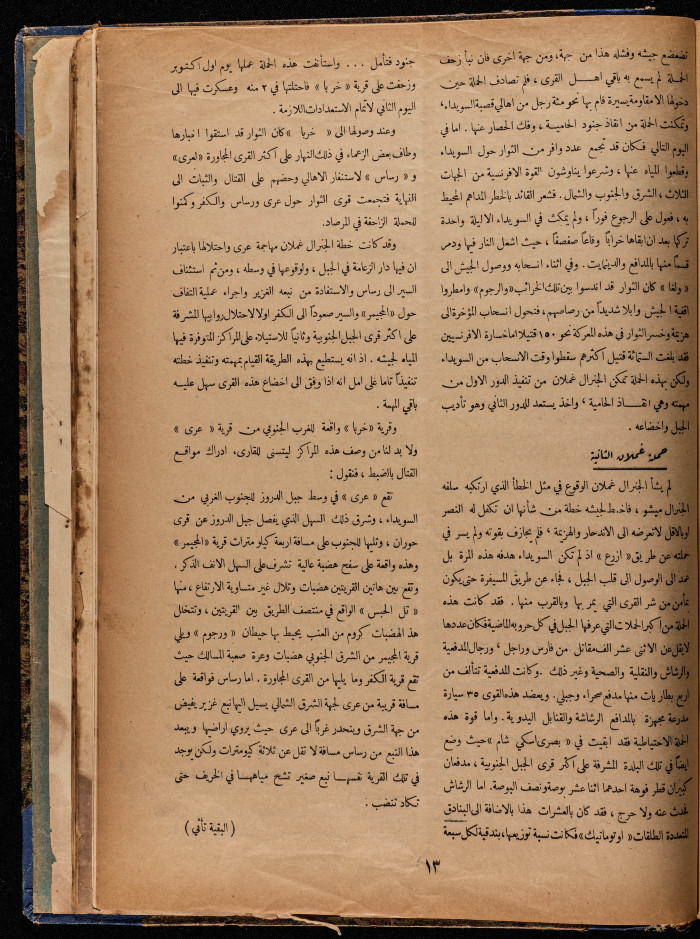 تضعضع جيشه وفشله هذا من جهة، ومن جهة اخرى فان نبأ زحف
الحملة لم يسمع به باقي اهل القرى ، فلم تصادف الحملة حين
دخولها الا مقاومة يسيرة قام بها نحو مئة رجل من اهالي قصبة السويداء،
وتمكنت الحملة من انقاذ جنود الحامية ، وفك الحصار عنها . اما في
اليوم التالي فكان قد تجمع عدد وافر من الثوار حول السويداء
وقطعوا المياه عنها ، وشرعوا يناوشون القوة الافرنسية من الجهات
الثلاث ، الشرق والجنوب والشمال . فشعر القائد بالخطر المداهم المحيط
به ، فعول على الرجوع فوراً ، ولم يمكث في السويداء الا ليلة واحدة
تركها بعد ان ابقاها خراباً وقاعاً صفصفاً ، حيث اشعل النار فيها ودمر
قسماً منها بالمدافع والديناميت . وفي اثناء انسحابه ووصول الجيش الى
« ولغا » كان الثوار قد اندسوا بين تلك الخرائب « والرجوم » وامطروا
اقفية الجيش وابلا شديداً من رصاصهم ، فتحول انسحاب المؤخرة الى
هزيمة وخسر الثوار في هذه المعركة نحو ١٥٠ قتيلا اما خسارة الافرنسيين
فقد بلغت الستمائة قتيل اكثرهم سقطوا وقت الانسحاب من السويداء
ولكن بهذه الحملة تمكن الجنرال غملان من تنفيذ الدور الاول من
مهمته وهي انقـــاذ الحامية ' واخذ يستعد للدور الثاني وهو تأديب
الجبل واخضاعه .
حملة غملان الثانية
لم يشأ الجنرال غملان الوقوع في مثل الخطأ الذي ارتكبه سلفه
الجنرال ميشو ، فاختط لجيشه خطة من شأنها ان تكفل له النصر
او بالاقل لا تعرضه الى الاندحار والهزيمة ' فلم يجازف بقوته ولم يسر في
حملته عن طريق « ازرع » اذ لم تكن السويداء هدفه هذه المرة بل
عمد الى الوصول الى قلب الجبل ، فجاء عن طريق المسيفرة حتى يكون
بمأمن من شر القرى التي يمر بها وبالقرب منها . فقد كانت هذه
الحملة من اكبر الحملات التي عرفها الجبل في كل حروبه الماضية فكان عددها
لا يقل عن الاثنى عشر الف مقاتل من فارس وراجل ' ورجال المدفعية
والرشاش والنقلية والصحية وغير ذلك . وكانت المدفعية تتألف من
اربع بطاريات منها مدفع صحراء وجبلي . ويعضد هذه القوى ٣٥ سيارة
مدرعة مجهزة بالمدافع الرشاشة والقنابل اليدوية . واما قوة هذه
الحملة الاحتياطية فقد ابقيت في « بصرى اسكي شام » حيث وضع
ايضاً في تلك البلدة المشرفة على اكثر قرى الجبل الجنوبية ، مدفعان
كبيران قطر فوهة احدهما اثنا عشر بوصة ونصف البوصة. اما الرشاش
فحدث عنه ولا حرج ، فقد كان بالعشرات هذا بالاضافة الى البنادق
المتعددة الطلقات « اوتوماتيك » فكانت نسبة توزيعها، بندقية لكل سبعة
جنود فتأمل ... واستأنفت هذه الحملة عملها يوم اول اكتوبر
وزحفت على قرية « خربا » فاحتلتها في ٢ منه وعسكرت فيها الى
اليوم الثاني لاتمام الاستعدادات اللازمة .
وعند وصولها الى « خربا » كان الثوار قد استقوا اخبارها
وطاف بعض الزعماء في ذلك النهار على اكثر القرى المجاورة « لعرى »
و « رساس » لاستنفار الاهالي وحضهم على القتال والثبات الى
النهاية فتجمعت قوى الثوار حول عرى ورساس والكفر وكمنوا
للحملة الزاحفة في المرصاد.
وقد كانت خطة الجنرال غملان مهاجمة عرى واحتلالها باعتبار
ان فيها دار الزعامة في الجبل ، ولوقوعها في وسطه ، ومن ثم استئناف
السير الى رساس والاستفادة من نبعه الغزير واجراء عملية التفاف
حول « المجيمر » والسير صعوداً الى الكفر اولا لاحتلال روابيها المشرفة
على اكثر قرى الجبل الجنوبية وثانياً للاستيلاء على المراكز المتوفرة فيها
المياه لجيشه . اذ انه يستطيع بهذه الطريقة القيام بمهمته وتنفيذ خطته
تنفيذاً تاما على امل انه اذا وفق الى اخضاع هذه القرى سهل عليه
باقي المهمة .
وقرية « خربا » واقعة للغرب الجنوبي من قرية « عرى »
ولا بد لنا من وصف هذه المراكز ليتسنى للقارىء ادراك مواقع
القتال بالضبط ، فنقول :
تقع « عرى » في وسط جبل الدروز للجنوب الغربي من
السويداء ، وشرق ذلك السهل الذي يفصل جبل الدروز عن قرى
حوران ، وتليها للجنوب على مسافة اربعة كيلومترات قرية « المجيمر »
وهذه واقعة على سفح هضبة عالية تشرف على السهل الانف الذكر .
وتقع بين هاتين القريتين هضبات وتلال غير متساوية الارتفاع ، منها
« تل الحبس » الواقع في منتصف الطريق بين القريتين ، وتتخلل
هذا الهضبات كروم من العنب يحيط بها حيطان « ورجوم » ويلي
قرية المجيمر من الشرق الجنوبي هضبات وعرة صعبة المسالك حيث
تقع قرية الكفر وما يليها من القرى المجاورة . اما رساس فواقعة على
مسافة قريبة من عرى لجهة الشرق الشمالي يسيل اليها نبع غزير يفيض
من جهة الشرق وينحدر غرباً الى عرى حيث يروي اراضيها ويبعد
هذا النبع من رساس مسافة لا تقل عن ثلاثة كيومترات ولكن يوجد
في تلك القرية نفسها نبع صغير تشح مياهها في الخريف حتى
تكاد تنضب .
( البقية تأتي )
١٣